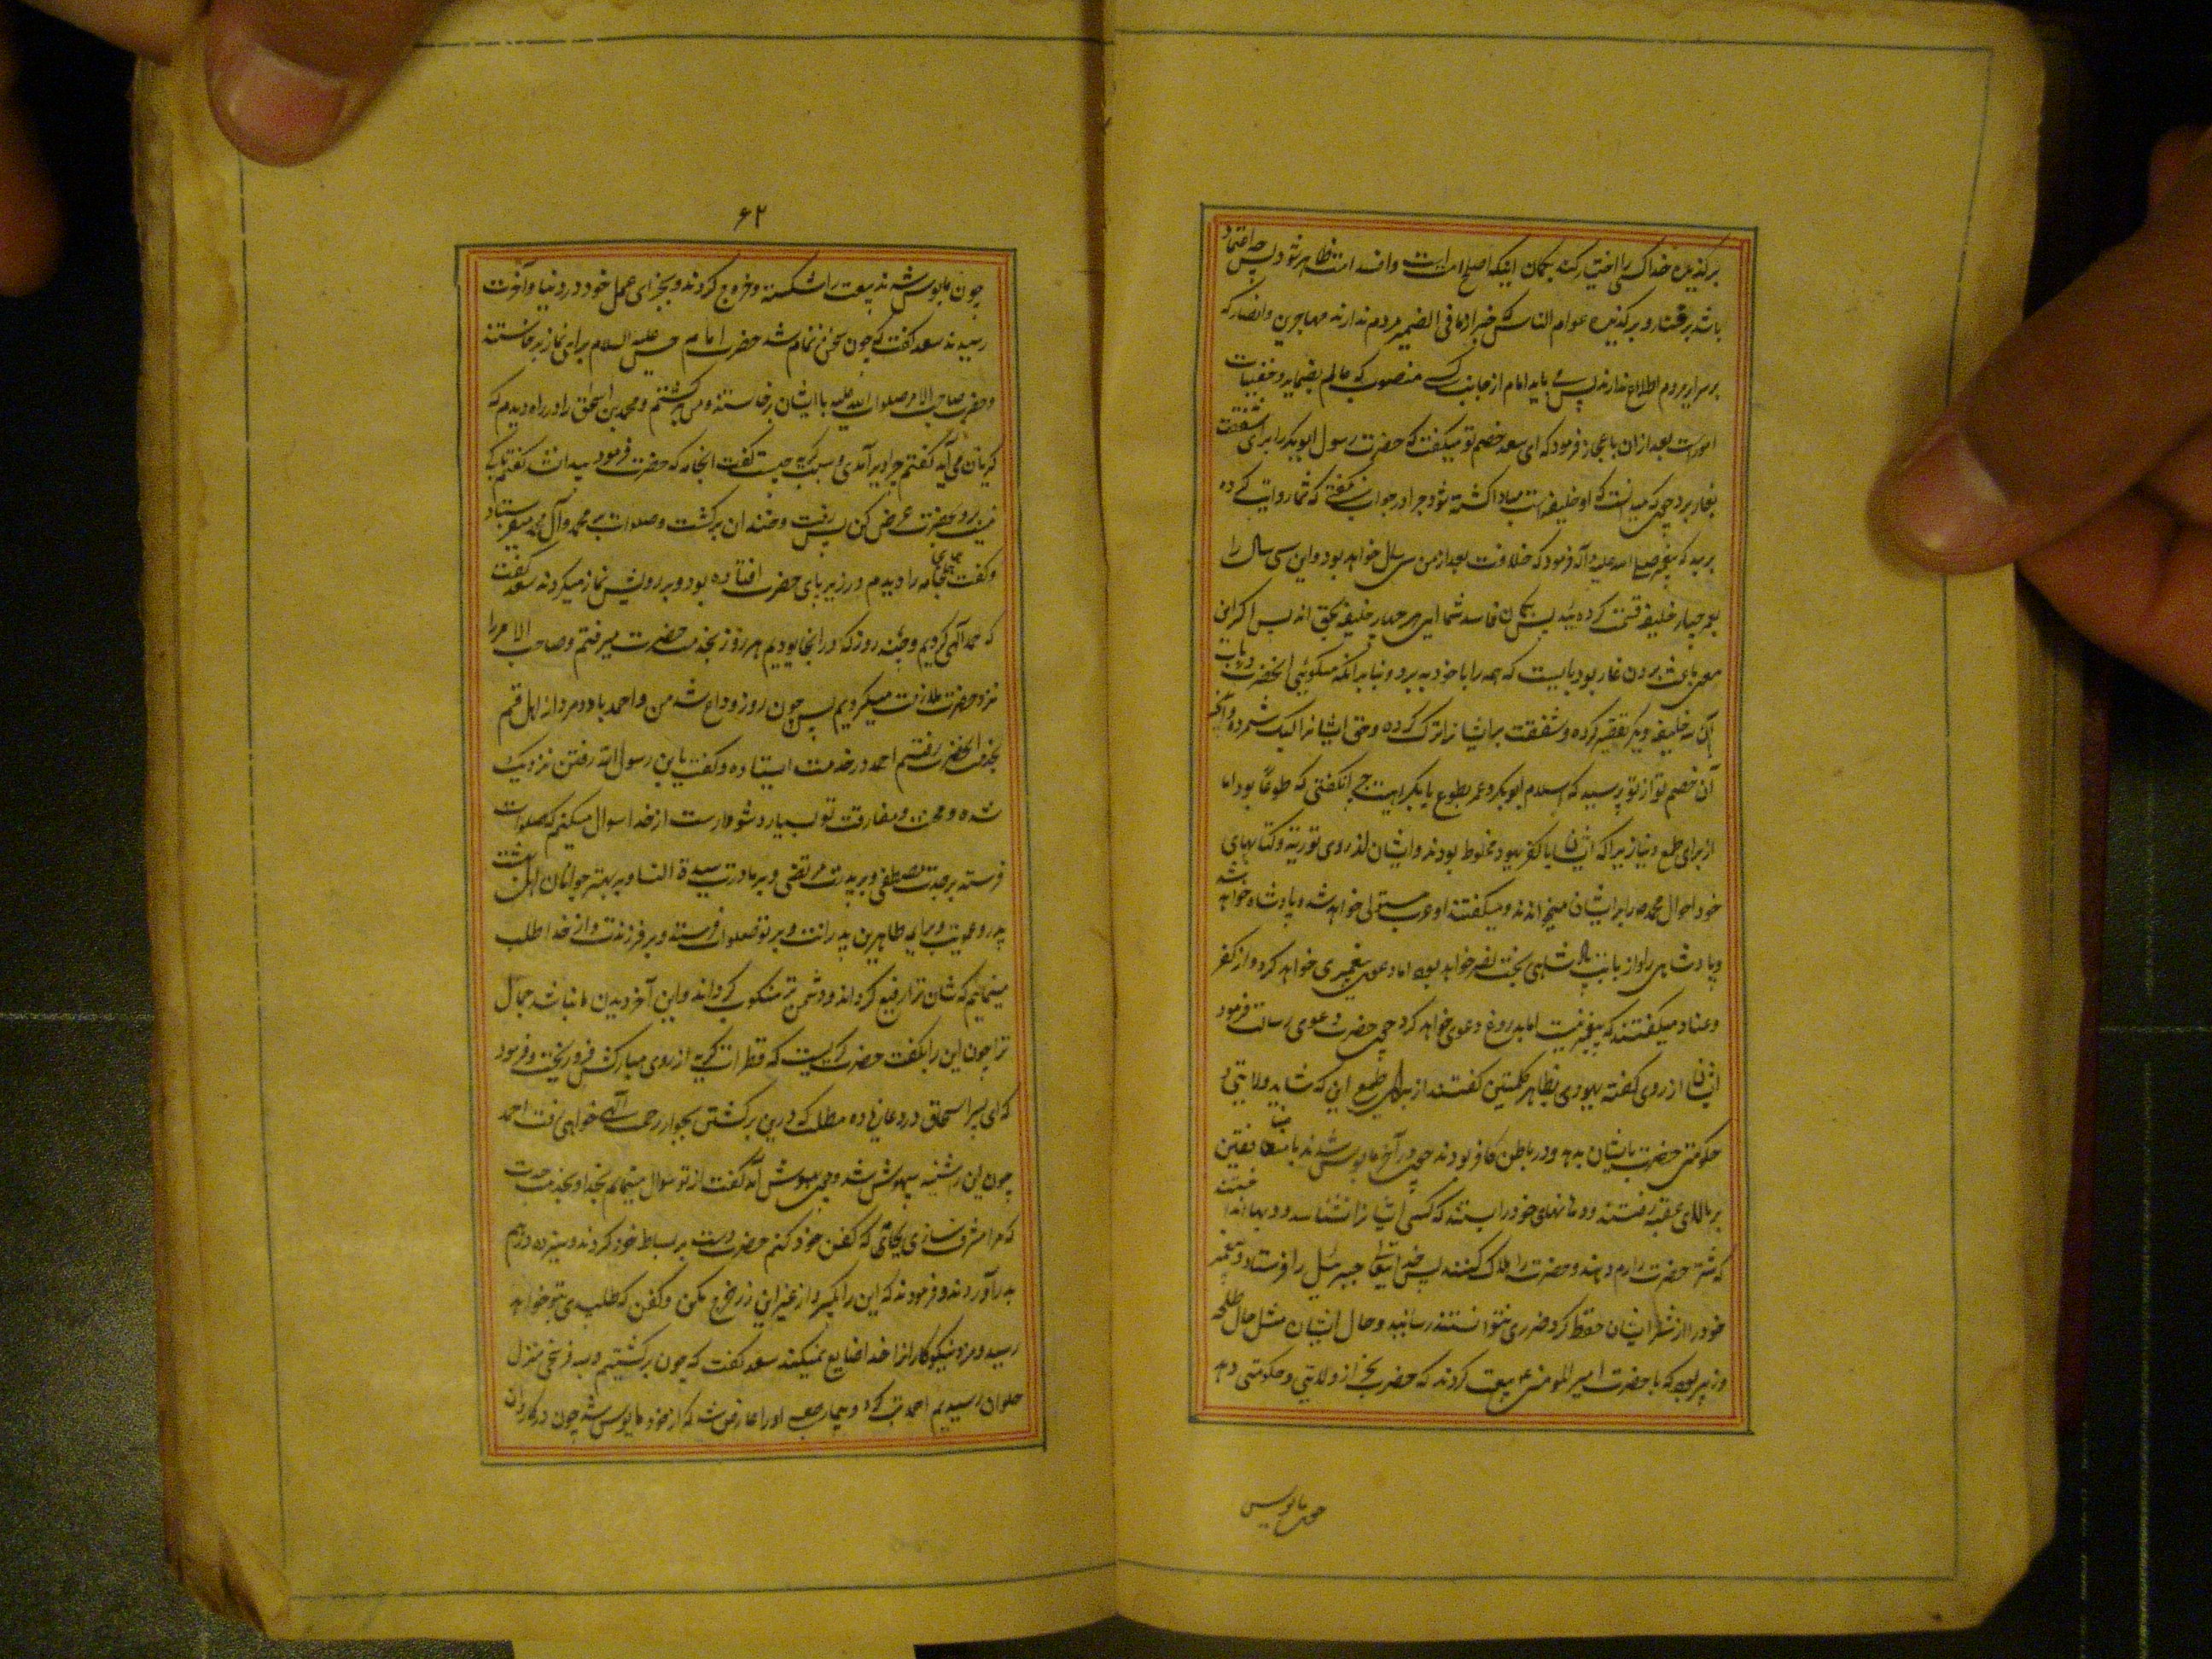 برگذیده خدا کسی را اختیار کنند بگمان اینکه اصلح است و افسد امت ظاهر شود پس چه اعتماد
باشد بر مختار و برگذیده عوام الناس که خبر از ما فی الضمیر مردم ندارند مهاجرین و انصار که
بر سرایر مردم اطلاع ندارند پس باید امام از جانب کسی منصوب که عالم بضمایر و خفیات
امور است بعد از آن باعجاز فرمود که ای سعد خصم تو میگفت که حضرت رسول ابوبکر را برای شفقت
بغار برد چون که میدانست که او خلیفه است مبادا کشته شود چرا در جواب نگفتی که شما روایت کرده
برید که پیغمبر صلی الله علیه و آله فرمود که خلافت بعد از من سی سال خواهد بود و این سی سال را
بعمر چهار خلیفه قسمت کرده‌اید پس بگمان فاسد شما این هر چهار خلیفه بحق اند پس اگر این
معنی باعث بردن غار بود بایست که همه را با خود ببرد و بنابر آنکه میگوئی آنحضرت در باب
آن سه خلیفه دیگر تقصیر کرده و شفقت بر ایشانرا ترک کرده و حق ایشانرا سبک شمرده و آنچه
آن خصم تو از تو پرسید که اسلام ابوبکر و عمر بطوع یا بکراهیت چرا نگفتی که طوعا بود اما
از برای طمع دنیا زیرا که ایشان با کفره یهود مخلوط بودند و ایشان از روی توریة و کتابهای
خود احوال محمد ص را بر ایشان میخواندند و میگفتند او بر عرب مستولی خواهد شد و پادشاه خواهد شد
و پادشاهی او از بابت پادشاهی بخت نصر خواهد بود اما دعوی پیغمبری خواهد کرد و از کفر
و عناد میگفتند که پیغمبر نیست اما بدروغ دعوی خواهد کرد چون حضرت دعوی رسالت فرمود
ایشان از روی گفته یهودی بظاهر کلمتین گفتند از برای طمع این که شاید ولایتی و
حکومتی حضرت بایشان بدهد و در باطن کافر بودند چون در آخر مایوس شدند با منافقین
بر بالای عقبه رفتند و دهانهای خود را بستند که کسی ایشانرا نشناسد و دبه‌ها انداختند
که شتر حضرت را رم دهند و حضرت را هلاک کنند پس خدایتعالی جبرئیل را فرستاد و پیغمبر
خود را از شر ایشان حفظ کرد ضرری نتوانستند رسانید و حال ایشان مثل حال طلحه
و زبیر بود که با حضرت امیر المومنین ع بیعت کردند که حضرت بهر یک از ولایتی و حکومتی دهد
چون مایوس
۶۲
چون مایوس شدند بیعت را شکسته و خروج کردند و بجزای عمل خود در دنیا و آخرت
رسیدند سعد گفت که چون سخن تمام شد حضرت امام حسن علیه السلام برای نماز برخاستند
و حضرت صاحب الامر صلوات الله علیه با ایشان برخاستند و من برگشتم و محمد بن اسحق را در راه دیدم که
گریان می‌آید گفتم چرا دیر آمدی و سبب گریه چیست گفت آنجامه که حضرت فرمود پیدا نشد گفتم باکی
نیست برو بحضرت عرض کن پس رفت و خندان برگشت و صلوات بر محمد و آل محمد میفرستاد
و گفت همان جامه را دیدم در زیر پای حضرت افتاده بود و بر رویش نماز میکردند سعد گفت
که حمد آلهی کردیم و چند روز که در آنجا بودیم هر روز بخدمت حضرت میرفتم و صاحب الامر را
نزد حضرت ملازمت میکردیم پس چون روز وداع شد من و احمد با دو مرد از اهل قم
بخدمت آنحضرت رفتیم احمد در خدمت ایستاده و گفت یابن رسول الله رفتن نزدیک
شده و محنت و مفارقت تو بسیار دشوار است از خدا سوال میکنم که صلوات
فرستد بر جدت مصطفی و بر پدرت مرتضی و بر مادرت سیدة النسا و بر بهتر جوانان اهل بهشت
پدر و عمویت و بر ایمه طاهرین پدرانت و بر تو صلوات فرستد و بر فرزندت و از خدا طلب
مینمائیم که شان ترا رفیع گرداند و دشمن ترا منکوب گرداند و این آخر دیدن ما نباشد جمال
ترا چون این را بگفت حضرت گریست که قطرات گریه از روی مبارکش فرو ریخت و فرمود
که ای پسر اسحاق در دعا زیاده مطلب که درین برگشتن بجوار رحمت آلهی خواهی رفت احمد
چون این را شنید بیهوش شد و چون بهوش آمد گفت از تو سوال مینمایم بخدا و بحرمت جدت
که مرا مشرف سازی بجامه‌ای که کفن خود کنم حضرت دست بر بساط خود کردند و سیزده درم
بدر آوردند و فرمودند که این را بگیر و از غیر این زر خرج مکن و کفن که طلبیدی بتو خواهد
رسید و مزد نیکوکاران را خدا ضایع نمیکند سعد گفت که چون برگشتیم و بسه فرسخی منزل
حلوان رسیدیم احمد تب کرد و بیماری صعب او را عارض شد که از خود مایوس شد چون در کاروان